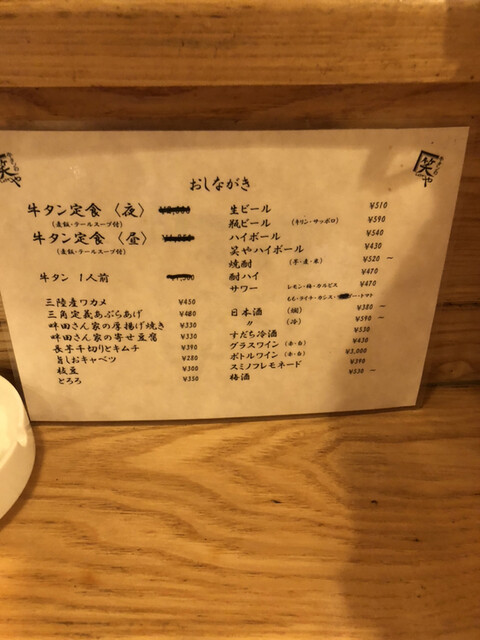 笑や
笑や
おしながき
牛タン定食〈夜〉
(麦飯・テールスープ付)
牛タン定食〈昼〉
(麦飯・テールスープ付)
牛タン 1人前
三陸産ワカメ ¥450
三角定義あぶらあげ ¥480
畔田さん家の厚揚げ焼き ¥330
畔田さん家の寄せ豆腐 ¥330
長芋千切りとキムチ ¥390
旨しおキャベツ ¥280
枝豆 ¥300
とろろ ¥350
生ビール ¥510
瓶ビール (キリン・サッポロ) ¥590
ハイボール ¥540
笑やハイボール ¥430
焼酎 (芋・麦・米) ¥520 ~
酎ハイ ¥470
サワー レモン・梅・カルピス ¥470
もも・ライチ・カシス・トマト
日本酒 (燗) ¥380 ~
〃 (冷) ¥590 ~
すだち冷酒 ¥530
グラスワイン (赤・白) ¥430
ボトルワイン (赤・白) ¥3,000
スミノフレモネード ¥390
梅酒 ¥530 ~